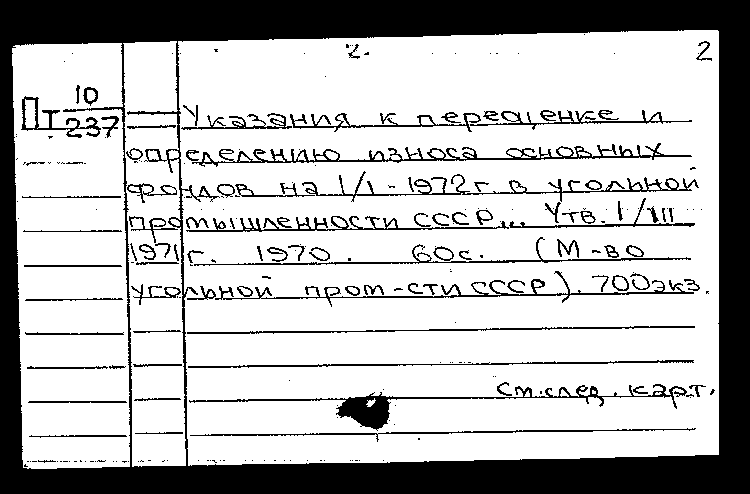 2. 2
Пт 10/237 Указания к переоценке и
определению износа основных
фондов на 1/I-1972г. в угольной
промышленности СССР... Утв. 1/III
1971г. 1970. 60с. (М-во
угольной пром-сти СССР). 700экз.
См.след. карт.